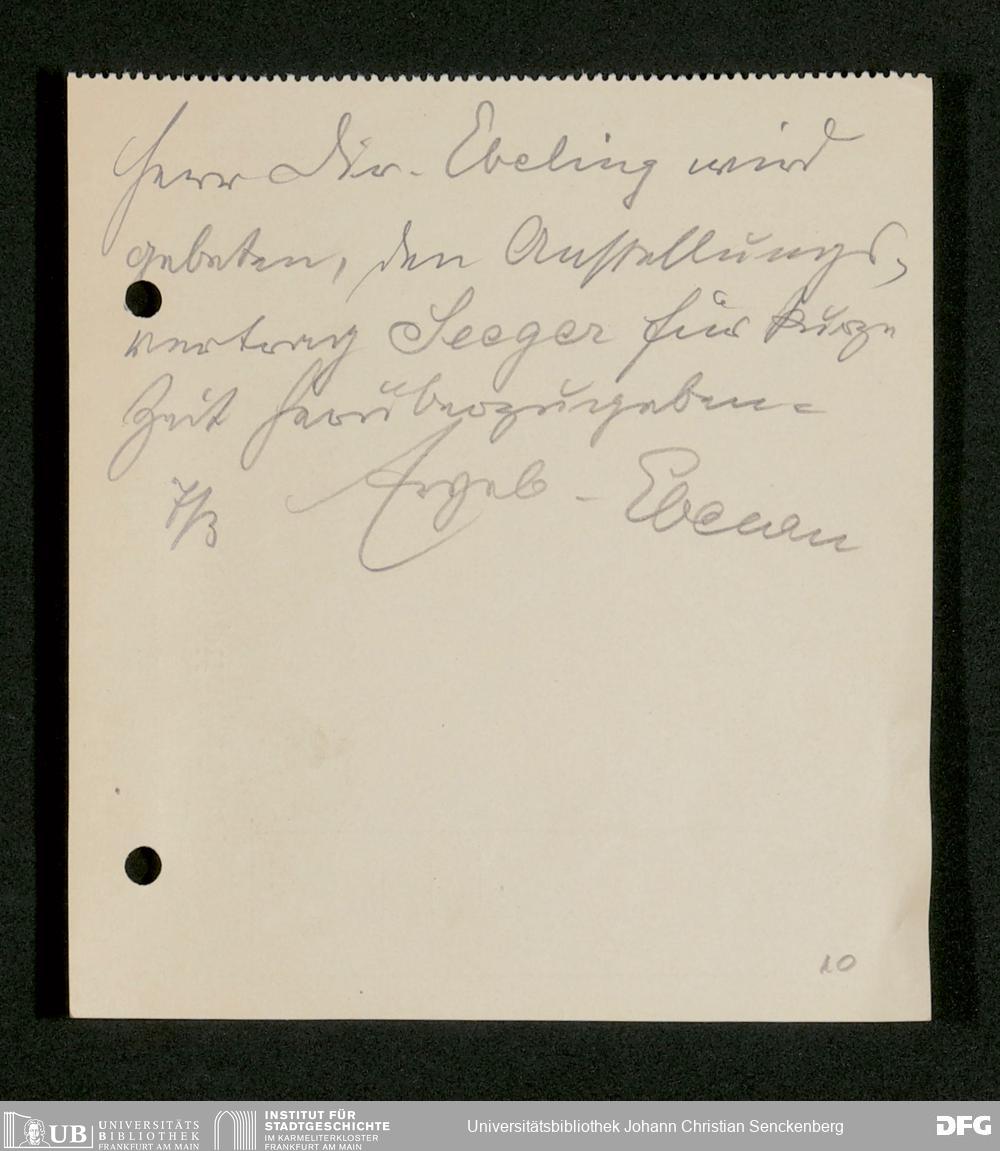 Herr Dir. Ebeling wird
gebeten, den Anstellungs-
vertrag Seeger für kurze
Zeit herüberzugeben.
7/3 Ergeb.
10
UB UNIVERSITÄTS
BIBLIOTHEK
FRANKFURT AM MAIN
INSTITUT FÜR
STADTGESCHICHTE
IM KARMELITERKLOSTER
FRANKFURT AM MAIN
Universitätsbibliothek Johann Christian Senckenberg
DFG